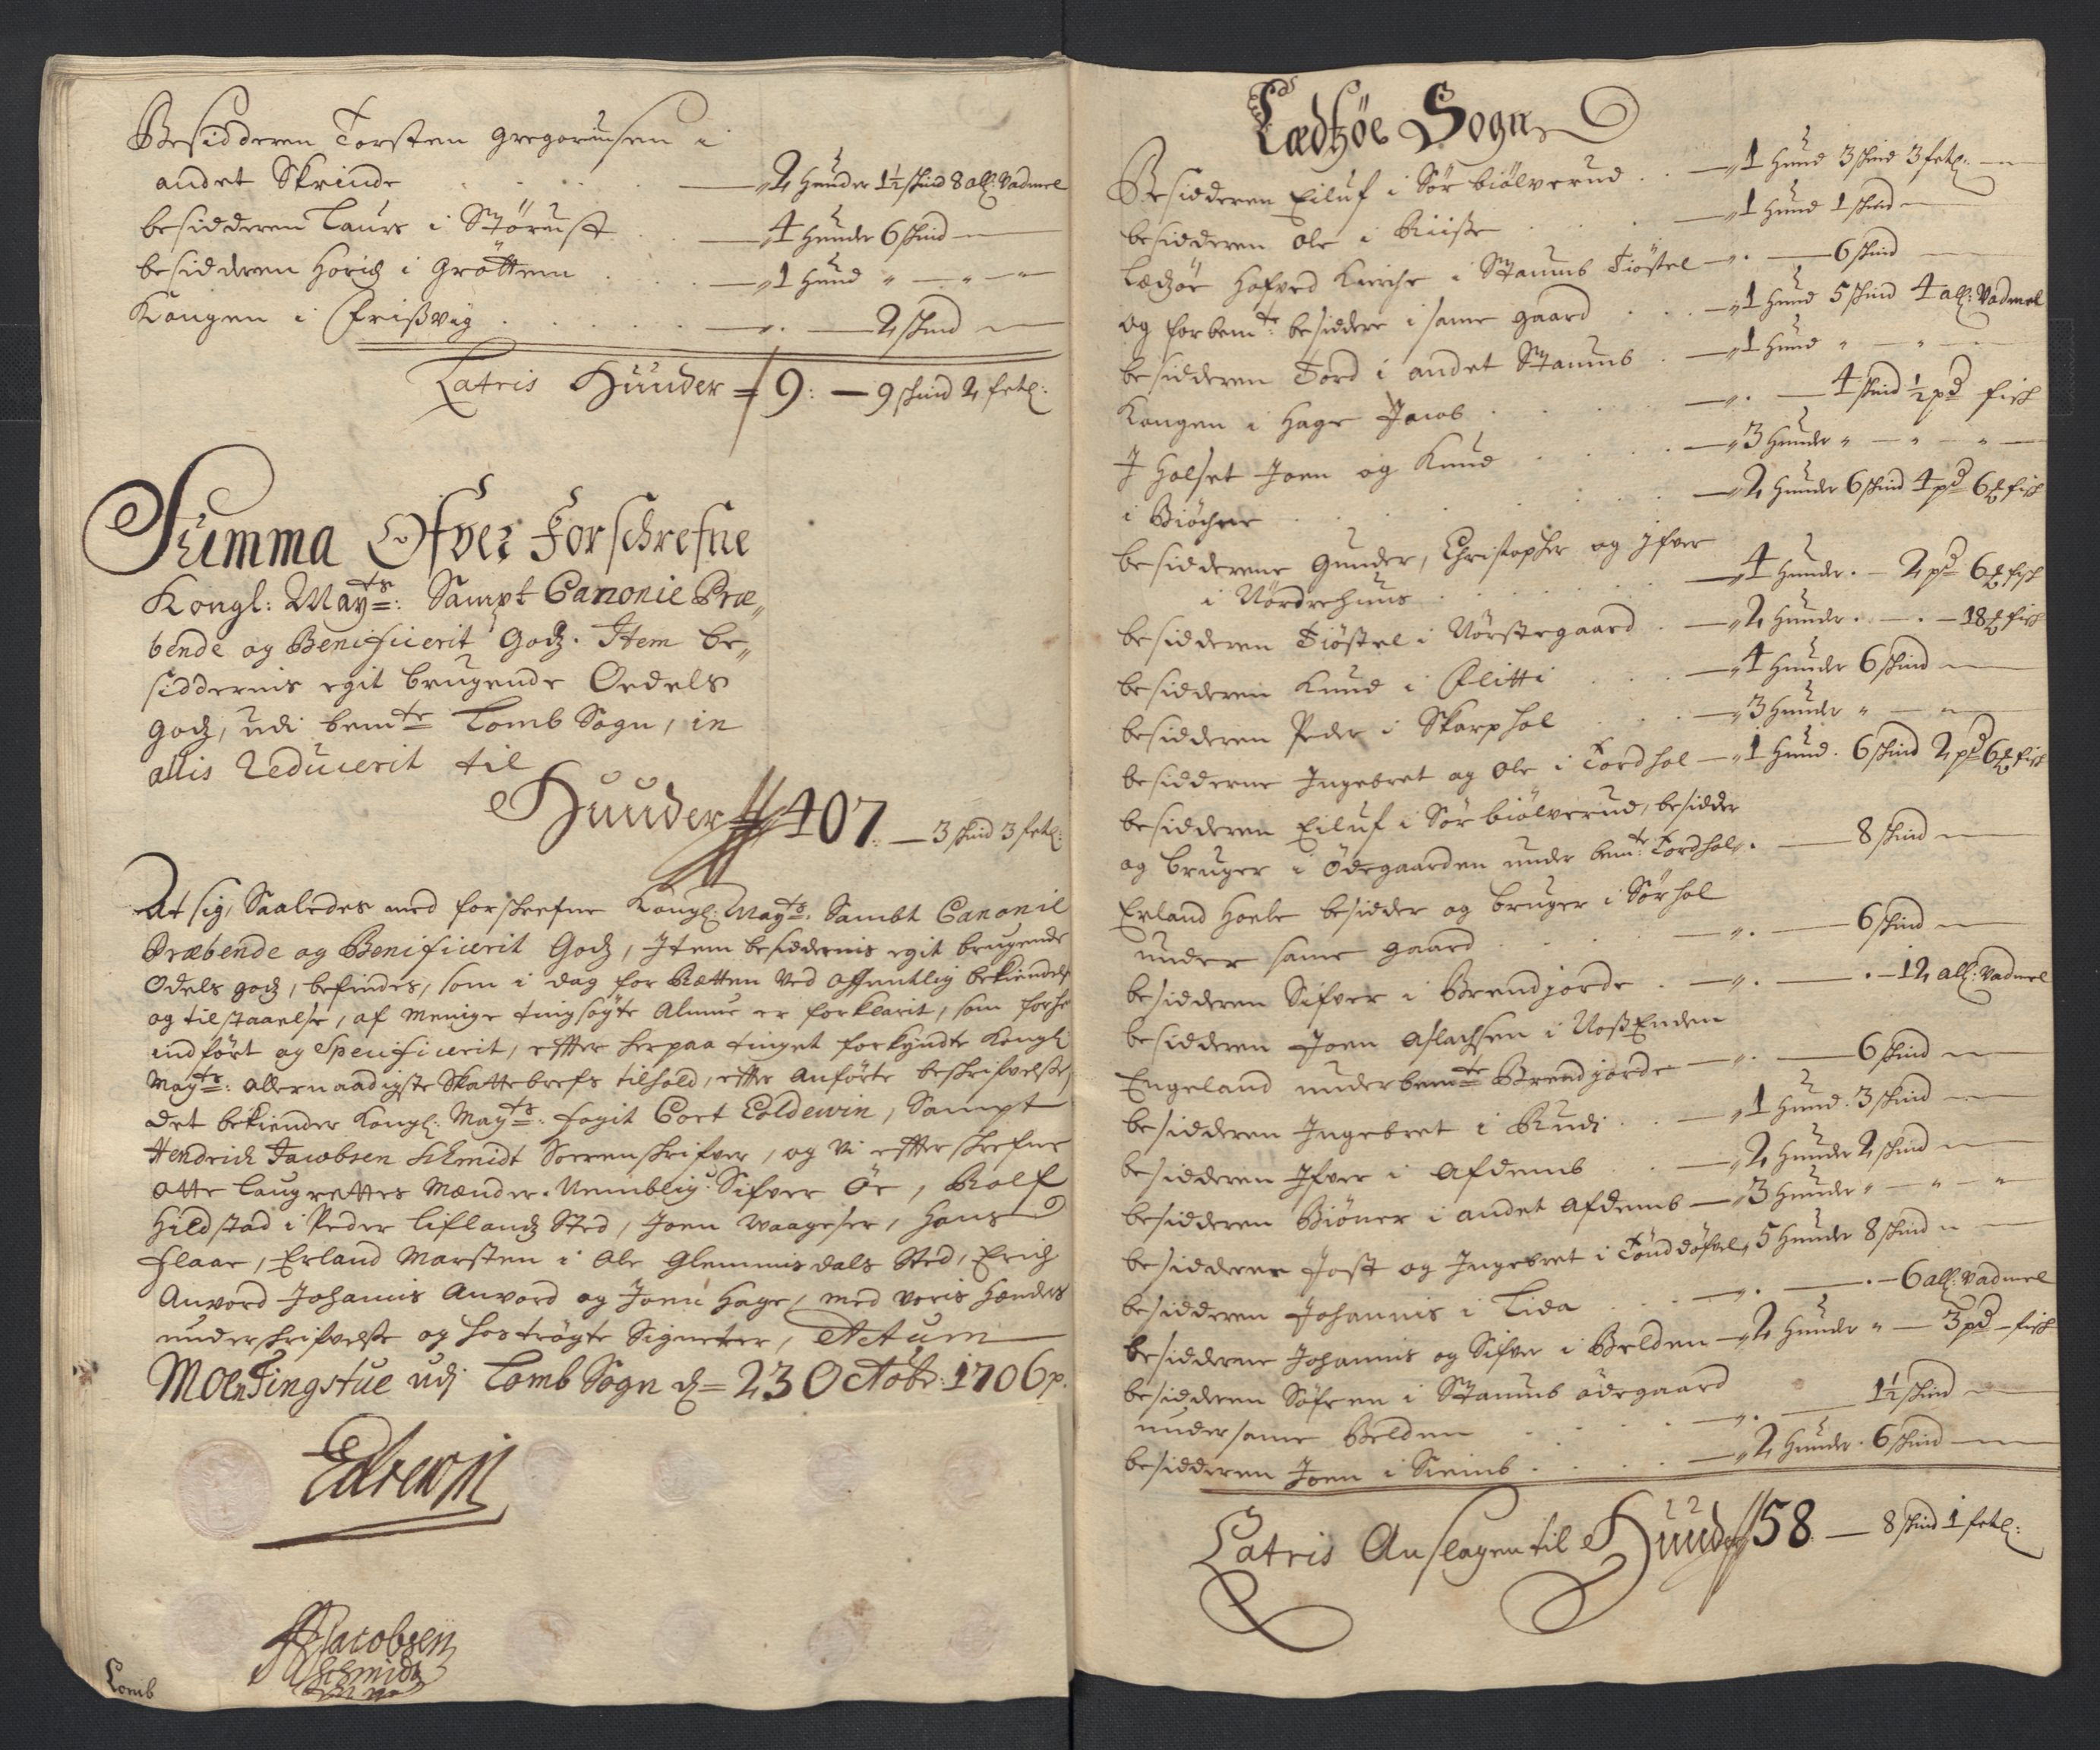 Besidderen Torsten Gregoriusen i
andet Skrinde . . . . — „2 Hunder 1½ skind 8 all: Vadmel
besidderen Laurs i Störust . . — „4 Hunder 6 skind —
besidderen Horig i Gröttem . . . — „1 Hund „ — „ —
Kongen i Frisvig . . . . . . — „. — 2 skind —
Latris Huuder 9: — 9 skind 2 fetl:
Summa Ofver Forschrefne
Kongl: Mayts: Sampt Canonie Præ„
bende og Benificerit Godz. Item be„
siddernis egit brugende Oedels
godz, udi bemte Lomb Sogn, in
allis Reducerit til
Huuder 407. — 3 skind 3 fetl:
At sig, Saaledes med forskrefne Kongl: Mayts: Sambt Canonie
Præbende og Benificerit Godz, Item besiddernis egit brugende
Odels godz, befindes, som i dag for Rætten Ved offentlig bekiendelse
og tilstaaelse, af Menige tingsøgte Almue er forklarit, som forhen
indført og Specificerit, effter her paa tinget forkyndte Kongl
Mayts: allernaadigste Skattebrefs tilhold, effter Anførte beskrifvelse,
det bekiender Kongl: Mayts: fogit Cort Coldewin, Sampt
Hendrich Jacobsen Schmidt Sorenskrifver, og Vi effterskrefne
otte Laugrettes Mænder. Nemblig: Sifver Öe, Rolf
Hildstad i Peder Liflandz Sted, Joen Waageser, Hans
Flaae, Erland Marsten i Ole Glemmisdals Sted, Erich
Anvord Johannis Anvord og Joen Hage, med voris Hænders
underskrifvelse og hoströgte Signeter, Actum
Moen Tingstue udj Lomb Sogn d= 23 Octobr: 1706
H Jacobsen
Schmidt
Lomb
Lædhöe Sogn
Besidderen Eiluf i Sör biölverud . . — „1 Hund 3 skind 3 fetl: —
besidderen Ole i Riise . . . . — „1 Hund 1 skind —
Ledhöe Hofved Kirche i Staumb Tiöstel — „. — 6 skind
og forbemte besidder i same gaard . . . — „1 Hund 5 skind 4 all: Vadmel
besidderen Tord i andet Staumb . — „1 Hund „ — „ —
Kongen i Hage Jacob . . . . — „. — 4 skind ½ pd fisk
I Holset Joen og Knud . . . . — „3 Hunder „ — „ — „ —
i Biöchne . . . . . . — „2 Hunder 6 skind 4 pd 6 ℔ fisk
besidderene Gunder, Christopher og Ifver
i Nördrehuus . . . . . — „4 Hunder. — 2 pd 6 ℔ fisk
besidderen Tiöstel i Nörstegaard . — „2 Hunder. — . — 18 ℔ fisk
besidderen Knud i Flitti . . . — „4 Hunder 6 skind —
besidderen Peder i Skarphol . . . — „3 Hunder „ — „
besidderne Ingebret og Ole i Tordhol — „1 Hund. 6 skind 2 pd 6 ℔ fisk
besidderen Eiluf i Sör biölverud, besidder
og bruger i Ödegaarden under bemte Tordhol „. — 8 skind —
Erland Hoele besidder og bruger i Sörhol
under same gaard . . . . — „. — 6 skind —
besidderen Sifver i Brendjorde . — „. — . — 12 all: Vadmel
besidderen Joen Aslachsen i NossEnden
Engeland under bemte Brendjorde — „. — 6 skind —
besidderen Ingebret i Rudj . . — „1 Hund. 3 skind —
besidderen Ifver i Afdemb . . — „2 Hunder 2 skind —
besidderen Biöner i andet Afdemb — „3 Hunder „ — „ — „
besidderne Jost og Ingebret i Tönddöfvel „5 Hunder 8 skind —
besidderen Johannis i Lida . . . — „. — . — 6 all: Vadmel
besidderne Johannis og Sifver i Belden — „2 Hunder „ — 3 pd — fisk
besidderen Söfren i Staumb ödegaard
under same Belden . . . . — „. — 1½ skind —
besidderen Joen i Sieinb . . . . — „2 Hunder. 6 skind —
Latris Anslagen til Huuder 58 — 8 skind 1 fetl: